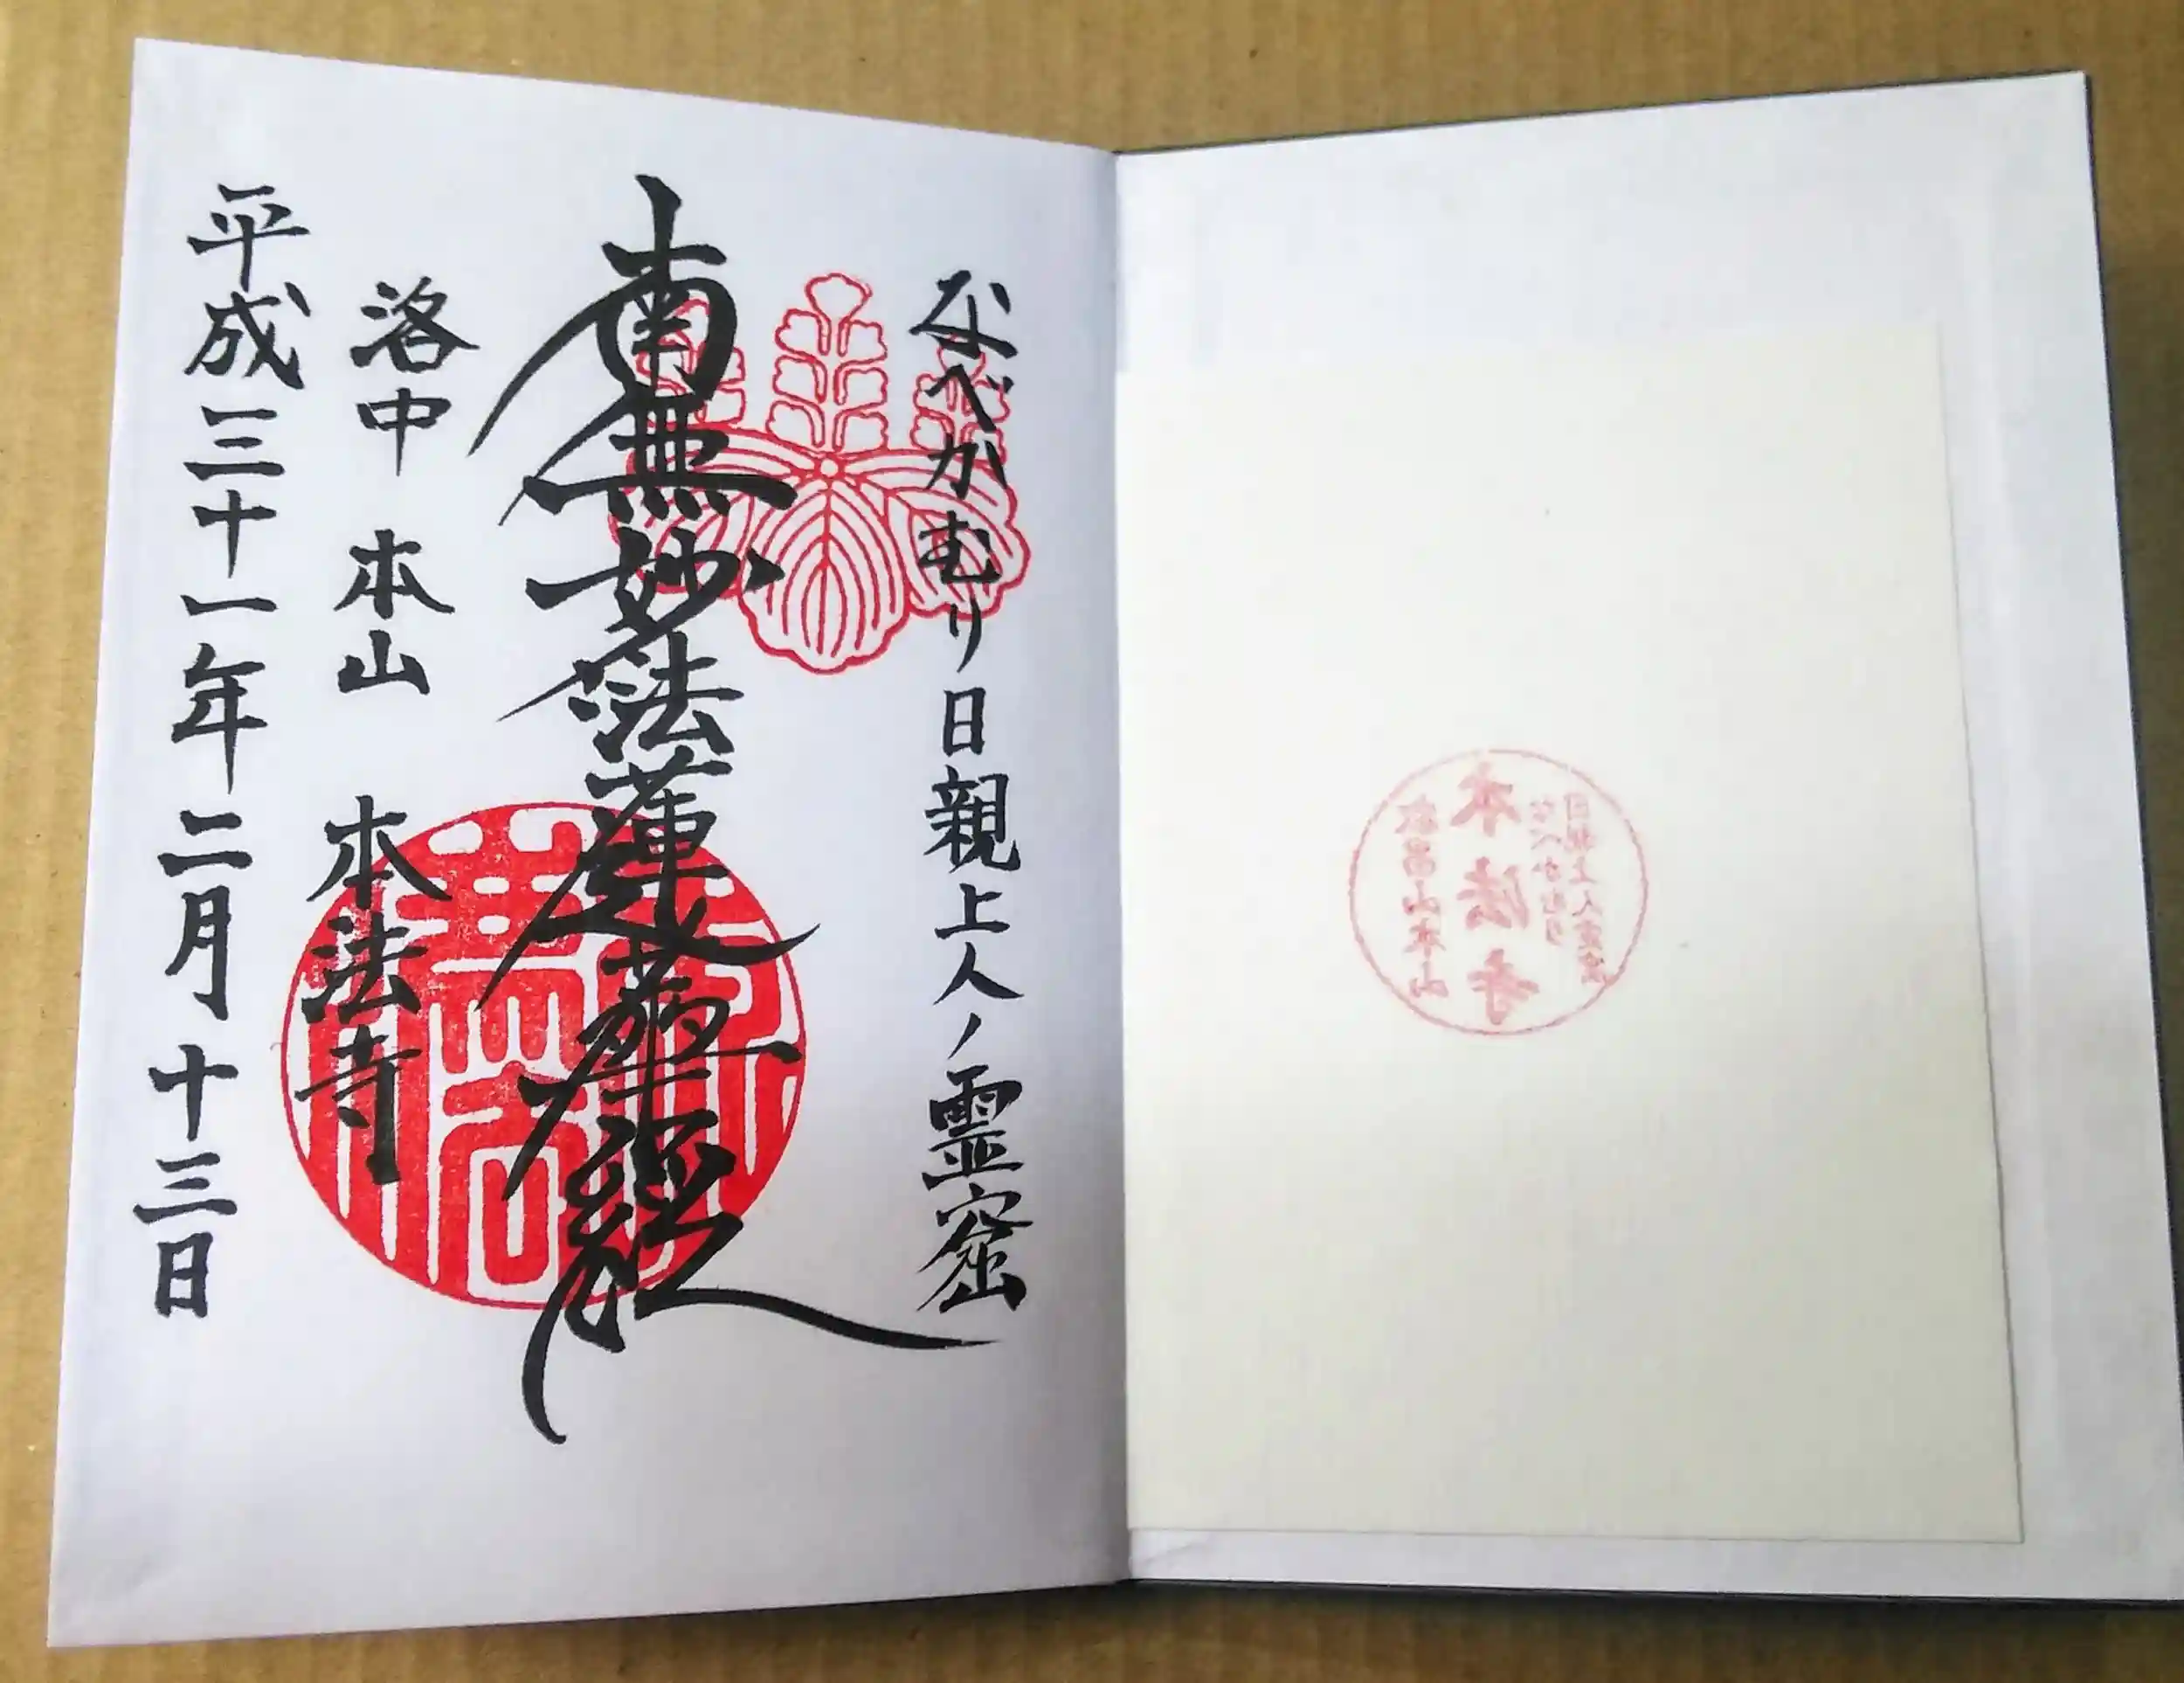 なべかむり日親上人ノ霊窟
南無妙法蓮華経
洛中 本山 本法寺
平成三十一年二月十三日
日親上人霊窟
なべかむり
本法寺
叡昌山本山